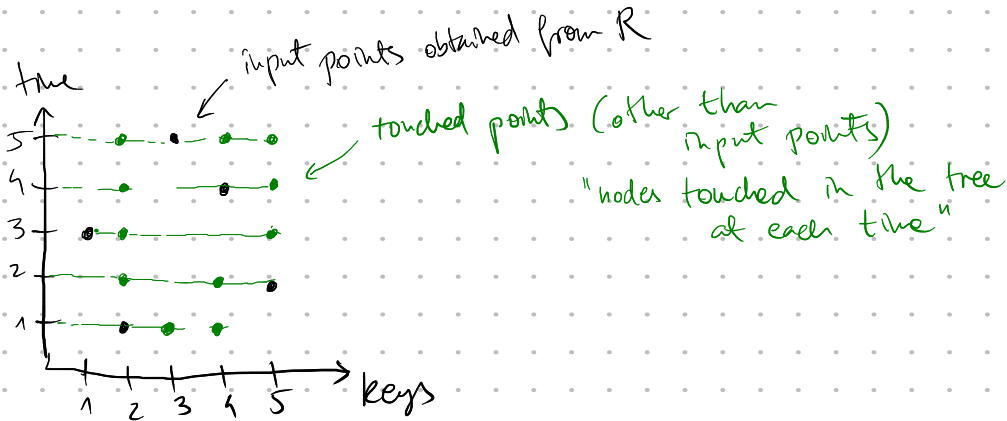 input points obtained from R
time
touched points (other than
input points)
"nodes touched in the tree
at each time"
5
4
3
2
1
1 2 3 4 5
keys